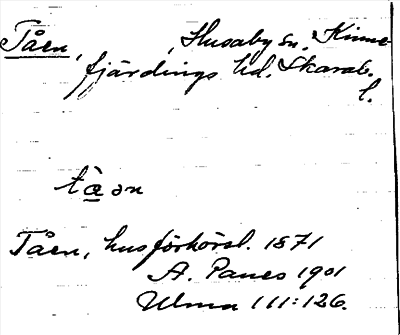 Tåen, , Husaby sn, Kinne-
fjärdings hd. Skarab.
l.
tå̀ən
Tåen, husförhörsl. 1871
A. Panes 1901
Ulma 111:126.